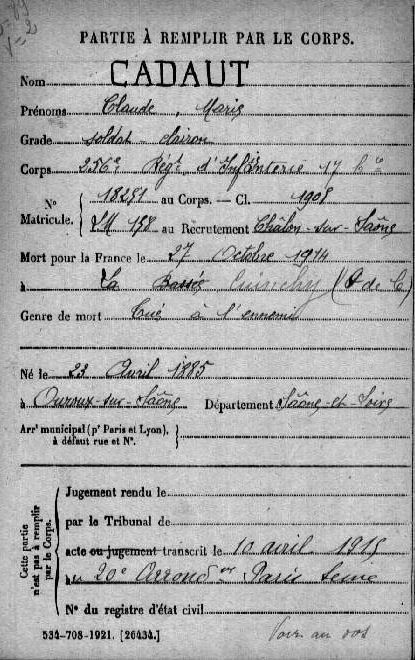 PARTIE À REMPLIR PAR LE CORPS.
Nom CADAUT
Prénoms Claude, Marie
Grade soldat clairon
Corps 256e Régt d'Infanterie 17 Cie
Nº 18251 au Corps. — Cl. 1905
Matricule. LM 178 au Recrutement Châlon-sur-Saône
Mort pour la France le 27 Octobre 1914
à La Bassée Cuinchy (P de C)
Genre de mort Tué à l'ennemi
Né le 23 Avril 1885
à Ouroux-sur-Saône Département Saône-et-Loire
Arrt municipal (pr Paris et Lyon),
à défaut rue et Nº.
Cette partie
n'est pas à remplir
par le Corps.
Jugement rendu le
par le Tribunal de
acte ou jugement transcrit le 10 avril 1915
au 20e Arronder Paris Seine
Nº du registre d'état civil
534-708-1921. [26434.]
Voir au dos